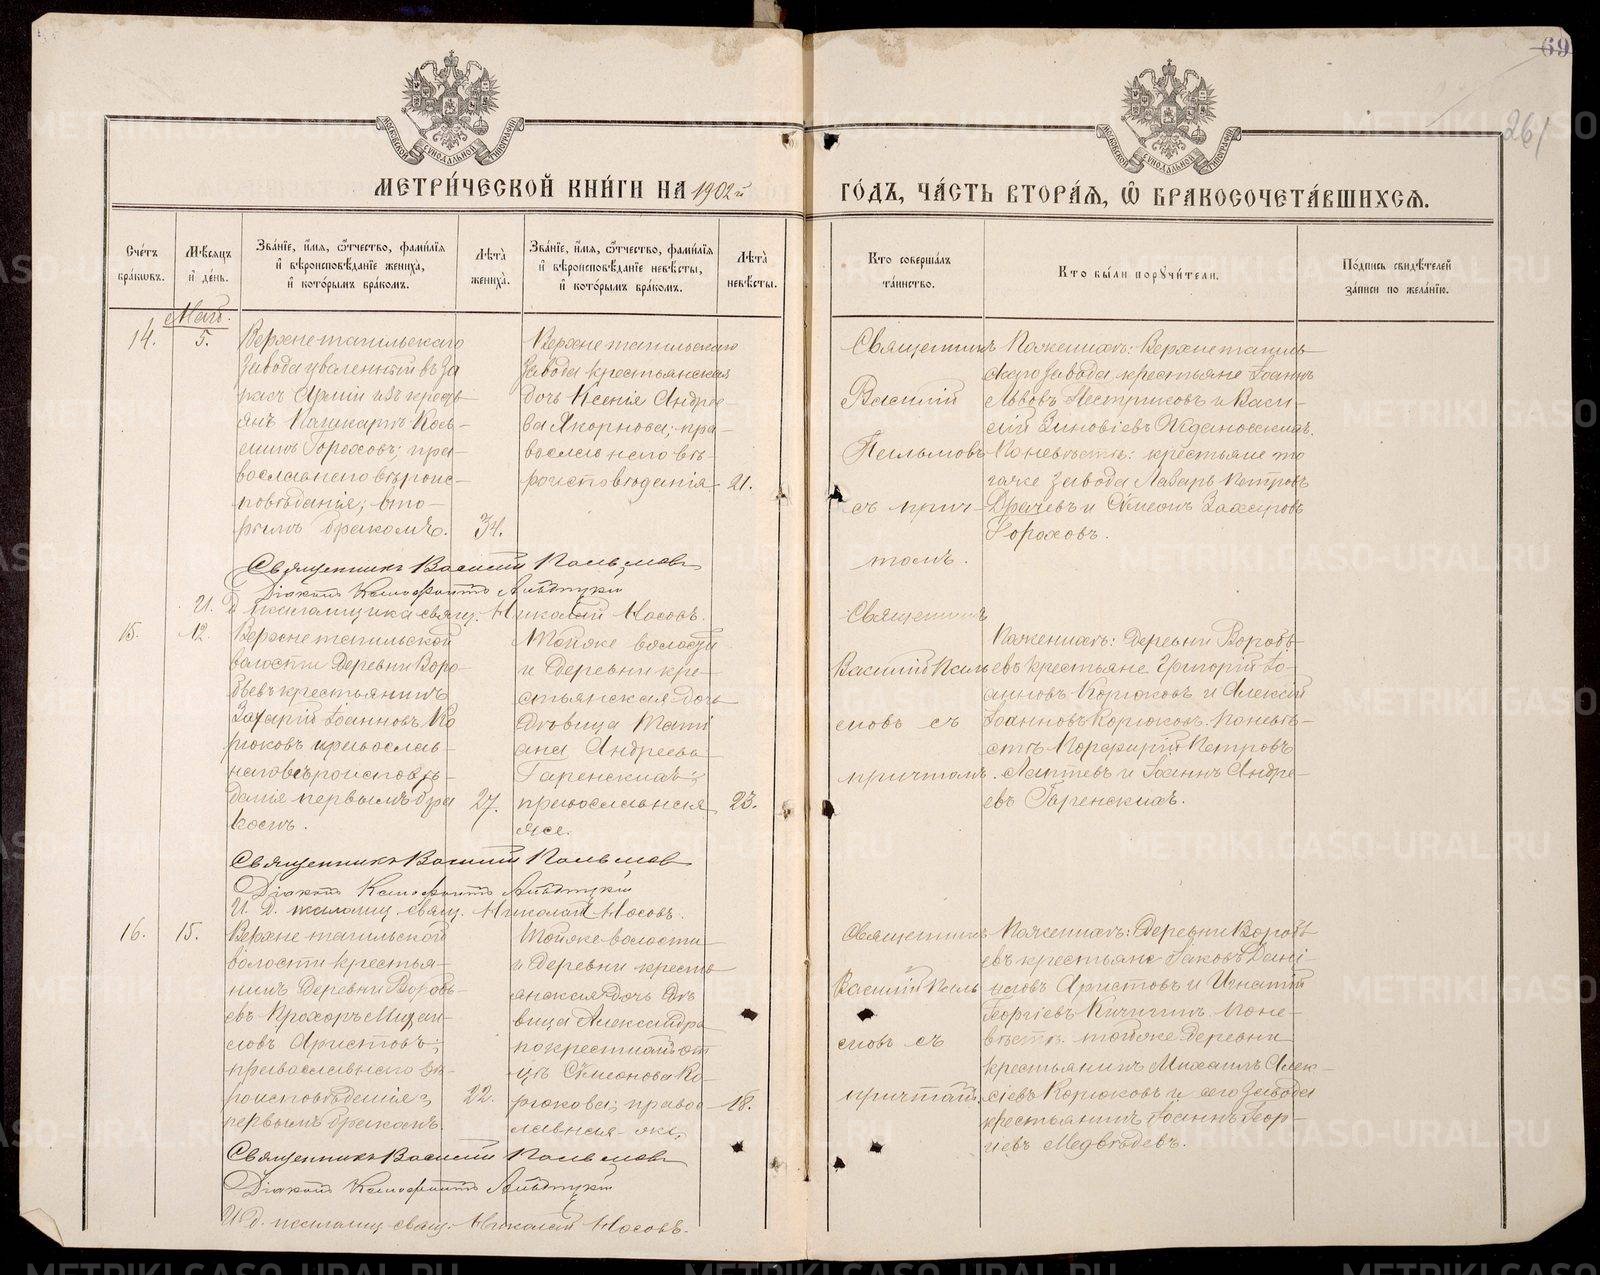 69
261
МОСКОВСКОЙ СѴНОДАЛЬНОЙ ТИПОГРАФІИ
МОСКОВСКОЙ СѴНОДАЛЬНОЙ ТИПОГРАФІИ
МЕТРИ́ЧЕСКОЙ КНИ́ГИ НА 1902й
ГО́ДЪ, ЧА́СТЬ ВТОРА́Ѧ, Ѽ БРАКОСОЧЕТА́ВШИХСѦ.
Сче́тъ бра́ковъ.
Мѣ́сяцъ и де́нь.
Зва́ніе, и́мя, ѻ́тчество, фами́лія
и вѣроисповѣ́даніе жениха́,
и кото́рымъ бра́комъ.
Лѣта̀ жениха̀.
Зва́ніе, и́мя, ѻ́тчество, фами́лія
и вѣроисповѣ́даніе невѣ́сты,
и кото́рымъ бра́комъ.
Лѣта̀ невѣ́сты.
Кто соверша́лъ
та́инство.
Кто бы́ли порꙋчи́тели.
По́дпись свидѣ́телей
за́писи по жела́нію.
Май.
14.
5.
Верхнетагильскаго
завода уволенный въ за
пасъ Арміи изъ кресть-
янъ
Гороховъ; пра-
вославнаго вѣроис-
повѣданія; вто-
рымъ бракомъ.
34.
Верхнетагильскаго
завода крестьянская
дочь Ксенія Андрее-
ва Якорнова; пра-
вославнаго вѣ-
роисповѣданія
21.
Священникъ
Василій
Пальмовъ
съ прич-
томъ.
По женихѣ: Верхнетагиль-
скаго завода крестьяне Іоаннъ
Львовъ и Васи-
лій Зиновіевъ
По невѣстѣ: крестьяне то
гоже завода Лазарь Петровъ
Драчевъ и Сѵмеонъ Захаровъ
Гороховъ.
Священникъ Василій Пальмовъ
Діаконъ Ксенофонтъ
И. Д. псаломщика свящ. Николай Носовъ.
15.
12.
Верхнетагильской
волости деревни Воро-
бьевъ крестьянинъ
Захарій Іоанновъ Ко
рюковъ православ-
наго вѣроисповѣ-
данія первымъ бра
комъ.
27.
Тойже волости
и деревни кре-
стьянская дочь
дѣвица Тати
ана Андреева
Гаренскихъ;
православная
же.
23.
Священникъ
Василій Паль
мовъ съ
причтомъ.
По женихѣ: деревни Воробь-
евъ крестьяне Григорій Іо-
анновъ Корюковъ и Алексій
Іоанновъ Корюковъ. По невѣ-
стѣ Порфирій Петровъ
Лаптевъ и Іоаннъ Андре-
евъ Гаренскихъ.
Священникъ Василій Пальмовъ
Діаконъ Ксенофонтъ
И. Д. псаломщ. свящ. Николай Носовъ.
16.
15.
Верхнетагильской
волости крестья-
нинъ деревни Воробь-
евъ Прохоръ Михаи-
ловъ Аристовъ;
православнаго вѣ-
роисповѣданія;
первымъ бракомъ.
22.
Тойже волости
и деревни кресть
янская дочь дѣ-
вица Александра
по крестному от
цѣ Сѵмеонова Ко-
рюкова; правос-
лавная-же.
18.
Священникъ
Василій Паль
мовъ съ
причтомъ.
По женихѣ: деревни Вороб-
евъ крестьяне Іаковъ Дані-
иловъ Аристовъ и Игнатій
Георгіевъ Кичигинъ. По не-
вѣстѣ: тойже деревни
крестьянинъ Михаилъ Алек-
сіевъ Корюковъ и сего завода
крестьянинъ Іоаннъ Геор-
гіевъ Медвѣдевъ.
Священникъ Василій Пальмовъ
Діаконъ Ксенофонтъ
И. д. псаломщ. свящ. Николай Носовъ.
METRIKI.GASO-URAL.RU